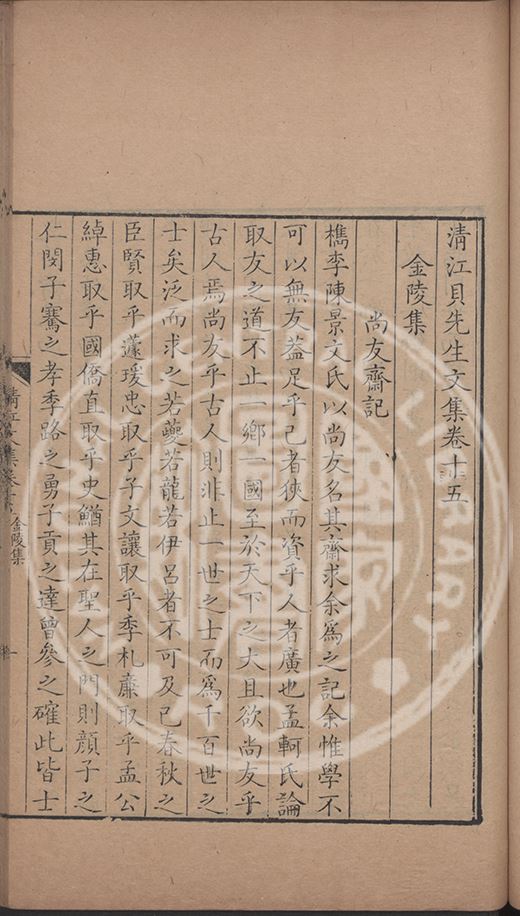 清江貝先生文集卷十五
金陵集
尚友齋記
檇李陳景文氏以尚友名其齋求余為之記余惟學不
可以無友葢足乎己者狹而資乎人者廣也孟軻氏論
取友之道不止一鄉一國至於天下之大且欲尚友乎
古人焉尚友乎古人則非止一世之士而為千百世之
士矣泛而求之若夔若龍若伊呂者不可及已春秋之
臣賢取乎蘧瑗忠取乎子文讓取乎季札亷取乎孟公
綽惠取乎國僑直取乎史鰌其在聖人之門則顔子之
仁閔子騫之孝季路之勇子貢之達曾參之確此皆士
金陵集